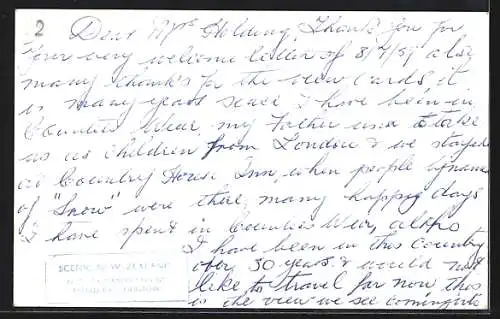 2 Dear Mrs Holding, Thank you for
Your very welcome letter of 8/7/81 also
many thank's for the view Cards, it
is many years since I have been in
Countess Wear, my Father use to take
us as children from London & we stayed
at Country House Inn, when people by name
of "Snow" were there, many happy days
I have spent in Countess Wear, altho
I have been in this Country
over 30 years & would not
like to travel far now this
is the view we see coming into
SCENIC NEW ZEALAND